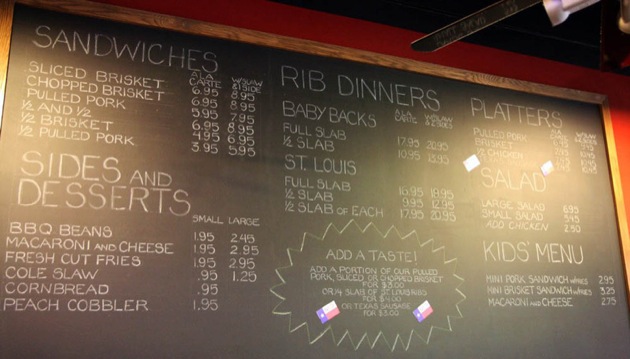 SANDWICHES
ALA CARTE W/SLAW & 1 SIDE
SLICED BRISKET 6.95 8.95
CHOPPED BRISKET 6.95 8.95
PULLED PORK 5.95 7.95
½ AND ½ 6.95 8.95
½ BRISKET 4.95 6.95
½ PULLED PORK 3.95 5.95
SIDES AND DESSERTS
SMALL LARGE
BBQ BEANS 1.95 2.45
MACARONI AND CHEESE 1.95 2.95
FRESH CUT FRIES 1.95 2.95
COLE SLAW .95 1.25
CORNBREAD .95
PEACH COBBLER 1.95
RIB DINNERS
BABY BACKS
FULL SLAB 17.95 20.95
½ SLAB 10.95 13.95
ST. LOUIS
FULL SLAB 16.95 19.95
½ SLAB 9.95 12.95
½ SLAB OF EACH 17.95 20.95
ADD A TASTE!
ADD A PORTION OF OUR PULLED
PORK, SLICED OR CHOPPED BRISKET
FOR $3.00
OR ¼ SLAB OF ST. LOUIS RIBS
FOR $4.00
OR TEXAS SAUSAGE
FOR $3.00
PLATTERS
PULLED PORK
BRISKET
½ CHICKEN
SALAD
LARGE SALAD 6.95
SMALL SALAD 3.45
ADD CHICKEN 2.50
KIDS' MENU
MINI PORK SANDWICH W/FRIES 2.95
MINI BRISKET SANDWICH W/FRIES 3.25
MACARONI AND CHEESE 2.75